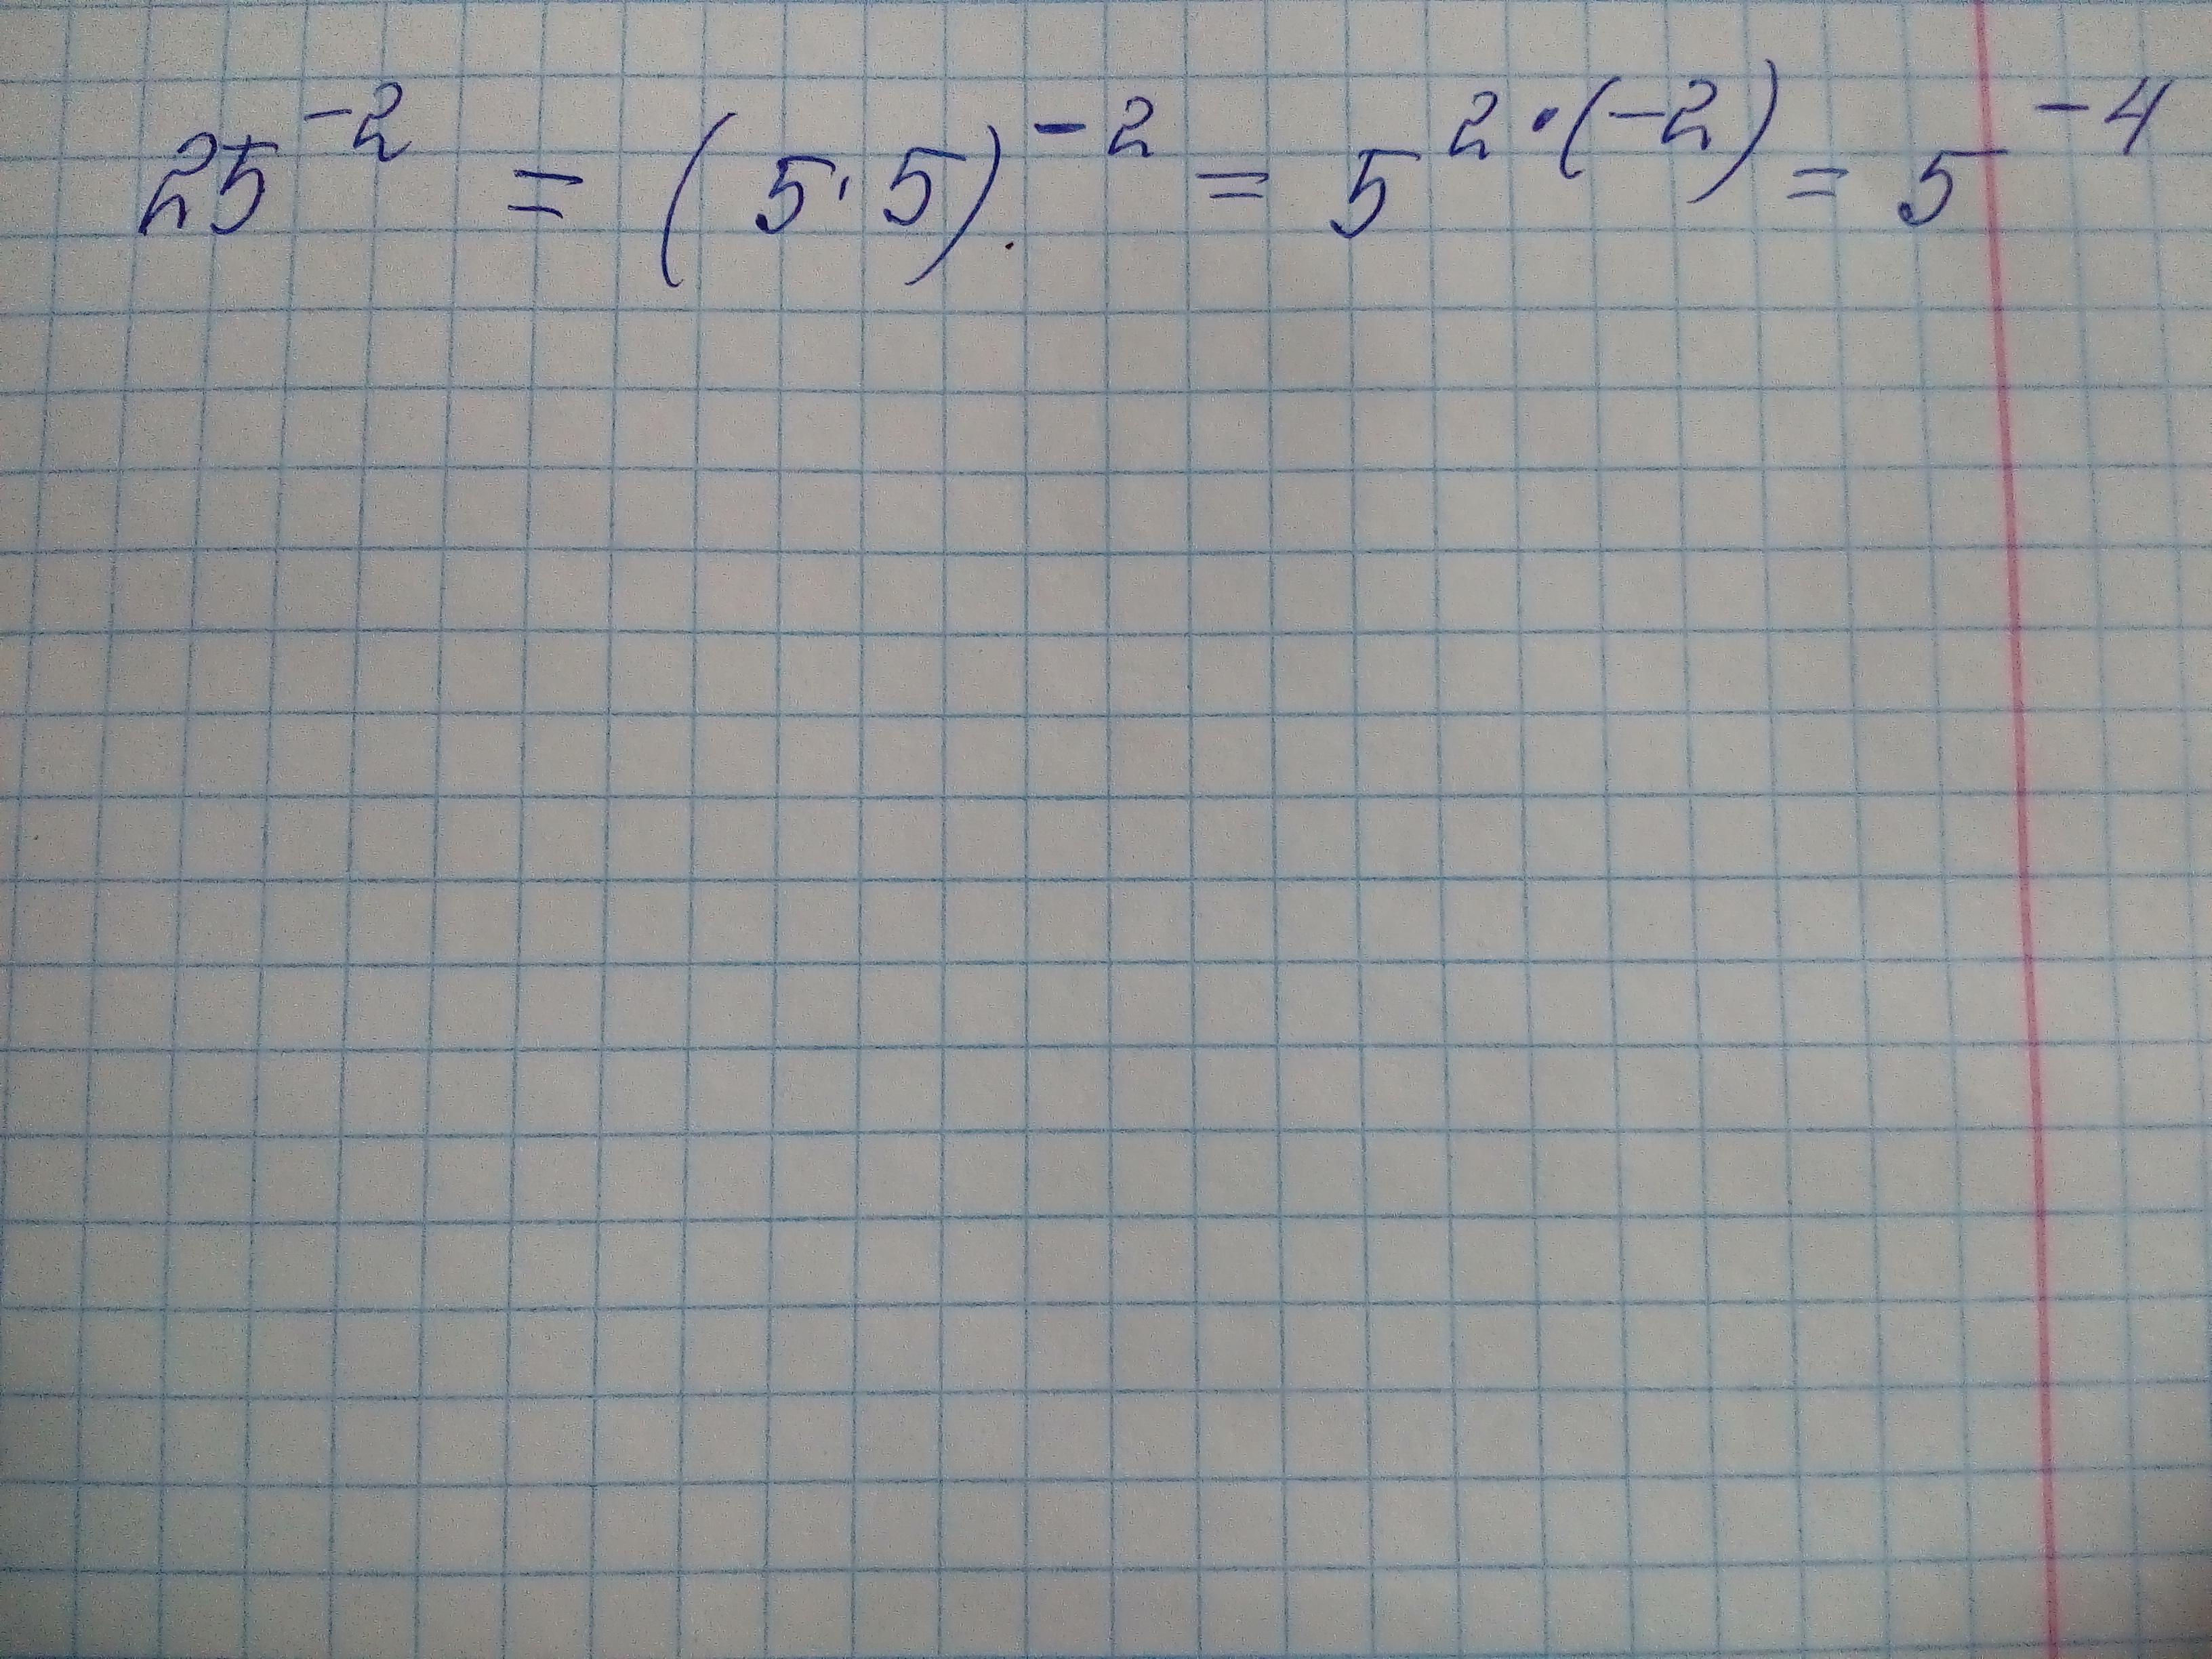 25⁻² = (5·5)⁻² = 5²·⁽⁻²⁾ = 5⁻⁴